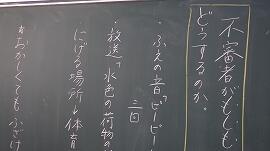 不審者がもしも
どうするのか。
・ふえの音"ピーピー
三回
・放送"水色の荷物の
にげる場所↓体育
*おかしくても ふざけ